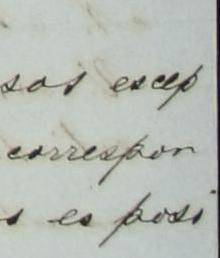 sos escep
correspon
s es posi